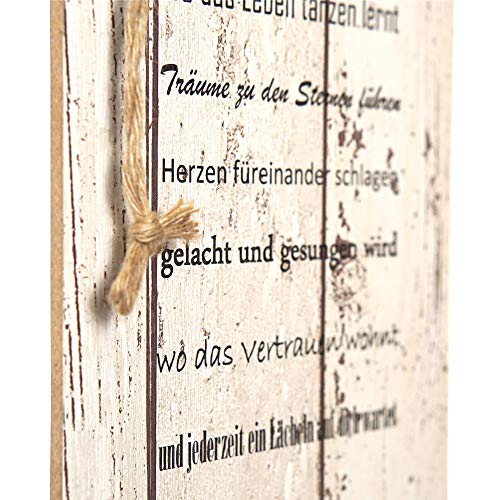 das Leben tanzen lernt
Träume zu den Sternen führen
Herzen füreinander schlagen
gelacht und gesungen wird
wo das Vertrauen wohnt
und jederzeit ein Lächeln auf dich wartet